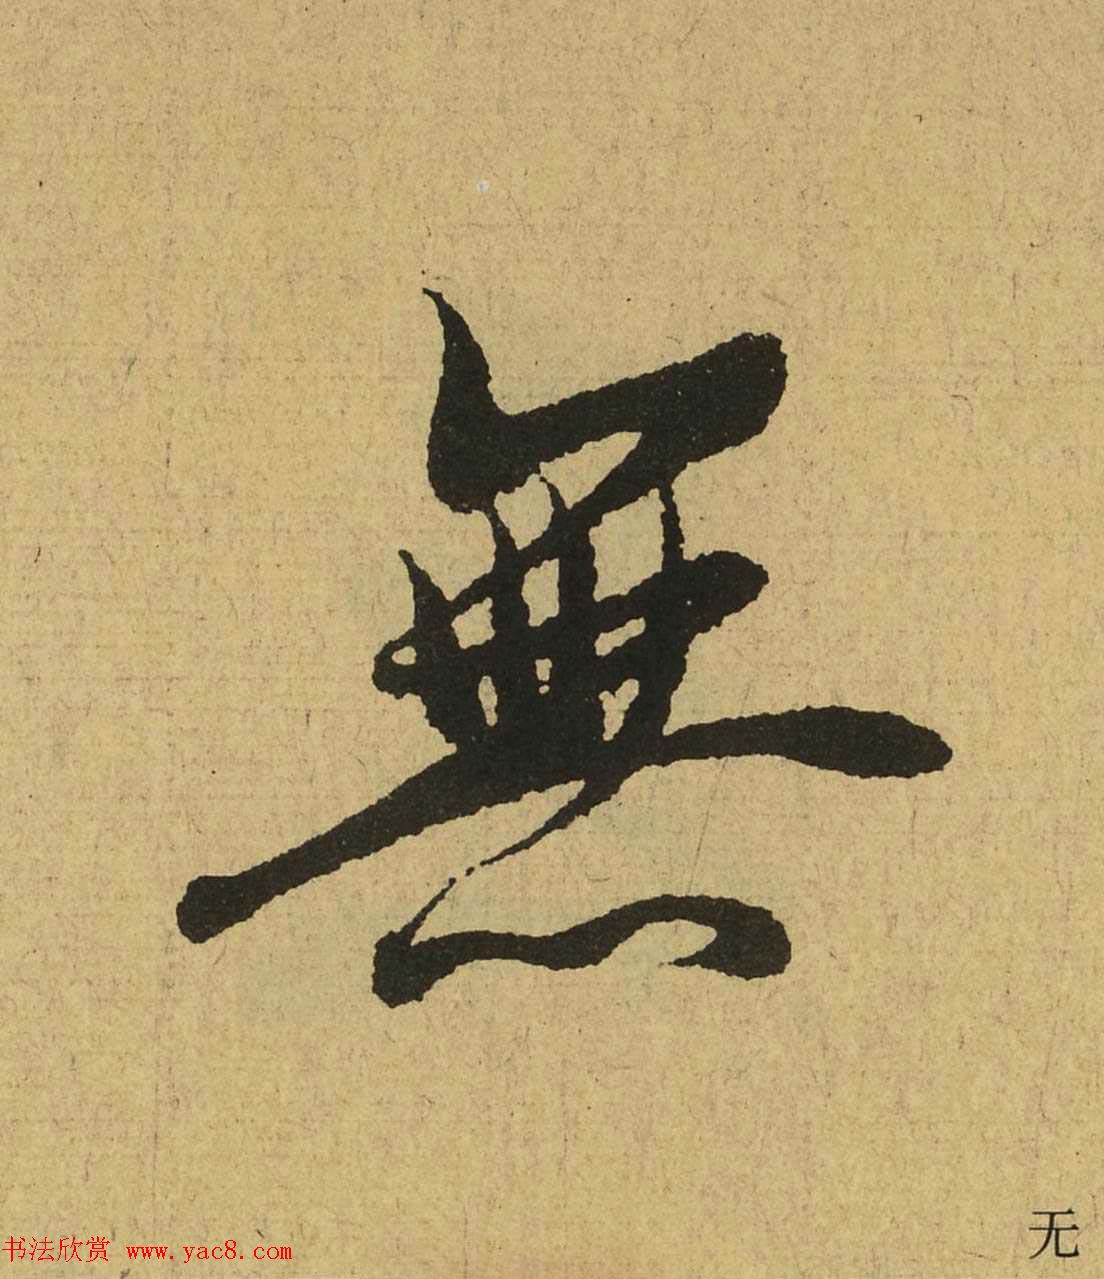 無
无
书法欣赏 www.yac8.com